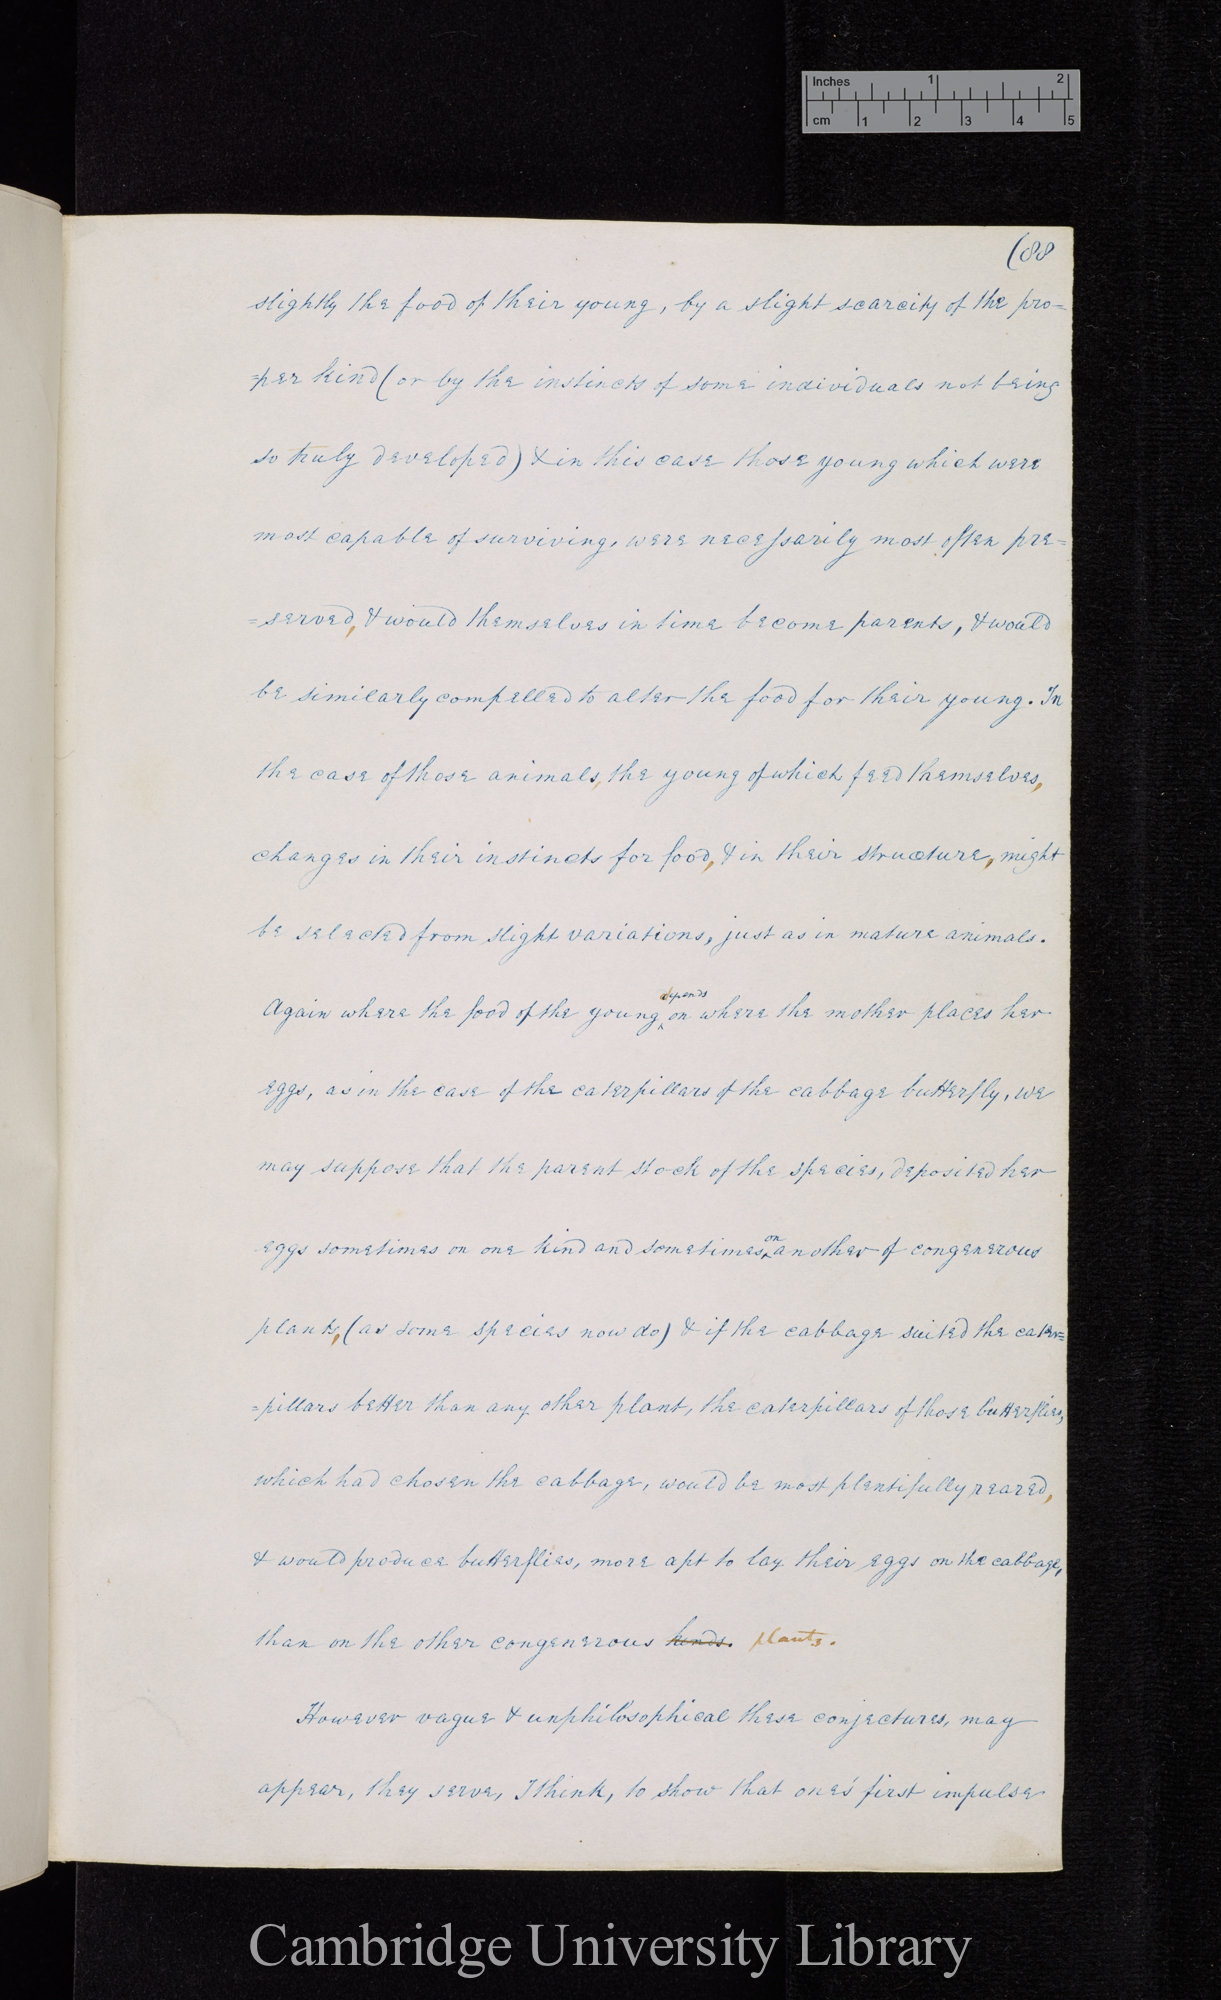 Inches 1 2
cm 1 2 3 4 5
(88
slightly the food of their young, by a slight scarcity of the pro=
=per kind (or by the instincts of some individuals not being
so truly developed) & in this case those young which were
most capable of surviving, were necessarily most often pre=
=served, & would themselves in time become parents, & would
be similarly compelled to alter the food for their young. In
the case of those animals, the young of which feed themselves,
changes in their instincts for food, & in their structure, might
be selected from slight variations, just as in mature animals.
depends
Again where the food of the young ^ on where the mother places her
eggs, as in the case of the caterpillars of the cabbage butterfly, we
may suppose that the parent stock of the species, deposited her
on
eggs sometimes on one kind and sometimes ^ another of congenerous
plants, (as some species now do) & if the cabbage suited the cater=
=pillars better than any other plant, the caterpillars of those butterflies,
which had chosen the cabbage, would be most plentifully reared,
& would produce butterflies, more apt to lay their eggs on the cabbage,
than on the other congenerous kinds. plants.
However vague & unphilosophical these conjectures, may
appear, they serve, I think, to show that one's first impulse
Cambridge University Library